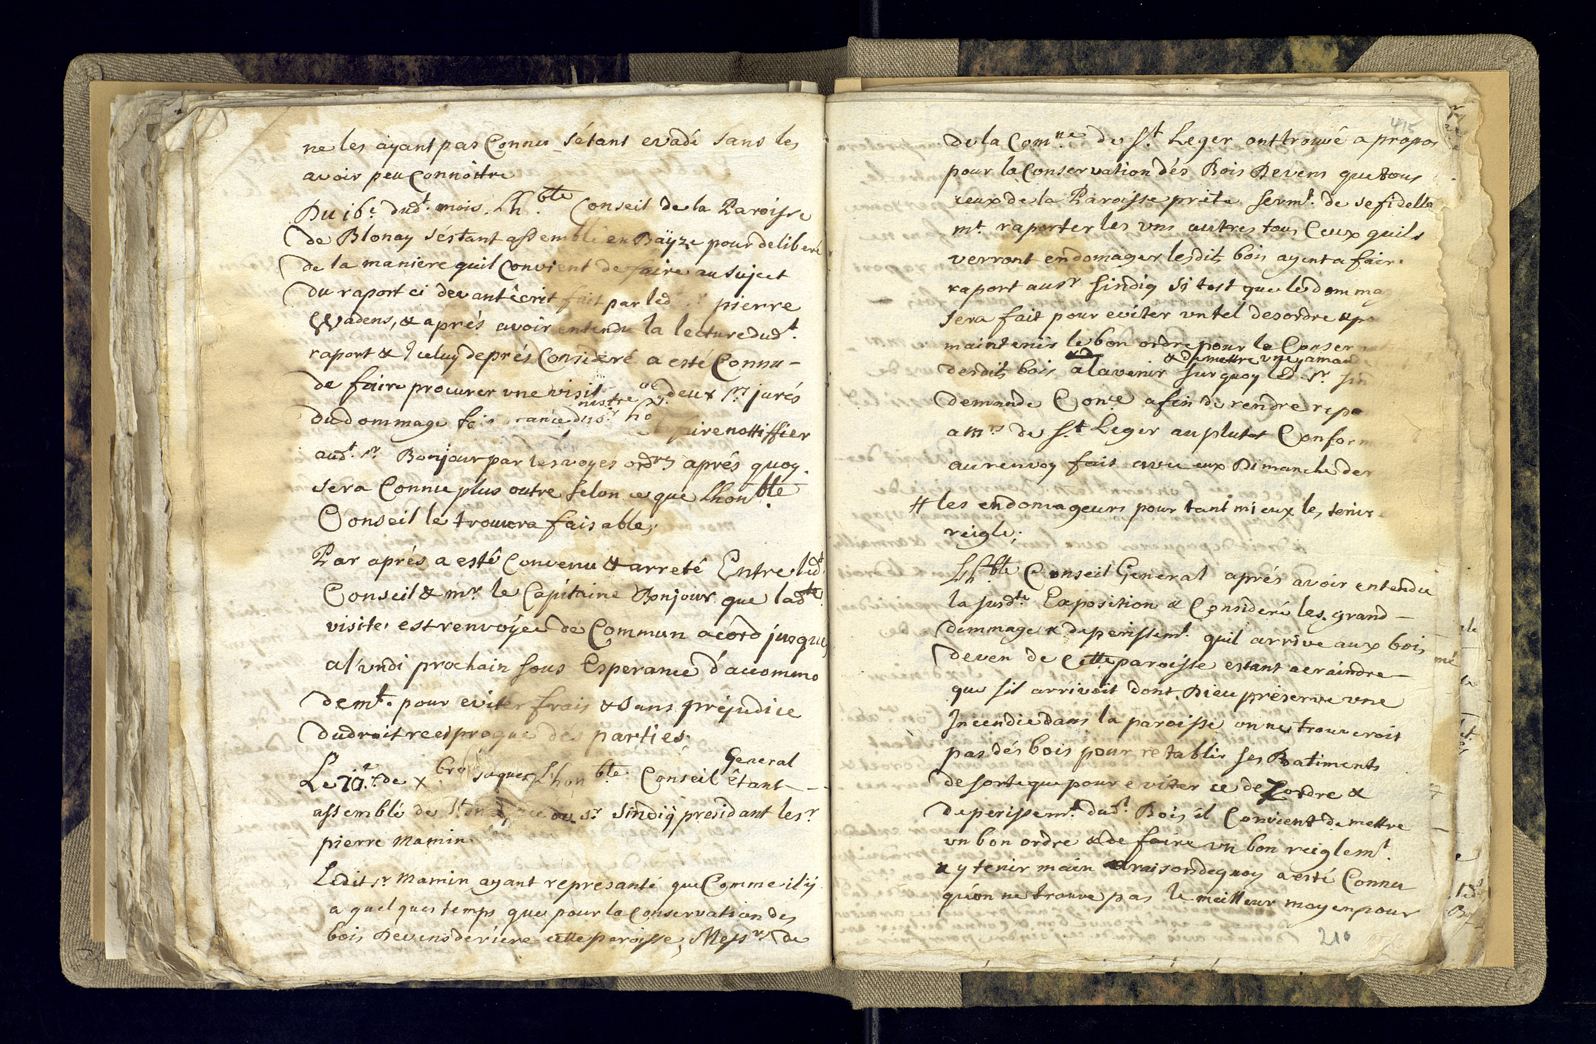 ne les ayant pas Connu s'étant evadé sans les
avoir peu Connoitre
Du 16.e dud.t mois Lh.ble Conseil de la Paroisse
de Blonay s'éstant assemblé en Bayze pour deliberé
de la maniere quil Convient de faire au sujet
du raport ci devant êcrit fait par led. pierre
Wadens, & aprés avoir entendu la lecture dud.t
raport & Iceluy deprés Consideré a esté Connu -
de faire procurer une visite deux Srs jurés
du dommage faire nottiffier
aud.t Sr Bonjour par les voyes ordres aprés quoy
sera Connu plus outre selon ce que Lhonble
Conseil le trouvera faisable;
Par aprés a esté Convenu & arreté Entre led.t
Conseil & mr. le Capitaine Bonjour que lad.te
visite est renvoyée de Commun acord jusques
al'undi prochain sous Esperance d'accommo
demt. pour eviter frais & sans préjudice
du droit reciproque des parties.
General
Le de Xbre Lhonble. Conseil êtant -
assemblé Sr. Sindiq presidant le sr
pierre Mamin
Ledit sr Mamin ayant representé que Comme il y
a quelques temps que pour la Conservation des
bois Devens deriere cette paroisse, Messrs de
415
de la Comne de St Leger ont trouvé a propos
pour la Conservation dés Bois Devens que tous
ceux de la Paroisse prete sermt. de se fidelle
mt raporter les uns autres tous Ceux quils
verront endomager lesdits bois ayent a faire
raport au sr Sindiq si tost que le domma
sera fait pour eviter un tel desordre & po
maintenir le bon ordre pour la Conser
& de mettre une amand
desdits bois a lavenir surquoy led. sr
demande Conte afin de rendre repo
a Mrs de St Leger au plutot Conform
au renvoy fait avec eux Dimanche der
# les endomageurs pour tant mieux les tenir
reigle;
Lh.ble Conseil General aprés avoir entendu
la susd.te Exposition & Consideré les grand -
dommage & deperissemt. quil arrive aux bois
deven de Cette paroisse estant a craindre -
que sil arrivoit dont Dieu préserve une
Incendie dans la paroisse on ne trouveroit
pas dés bois pour retablir ses Batiments
de sorte que pour eviter ce dezordre &
deperissemt. dud.t Bois il Convient de mettre
un bon ordre & de faire un bon reiglemt.
& y tenir main a raison dequoy a esté Connu
qu'on ne trouve pas le meilleur moyen pour
210